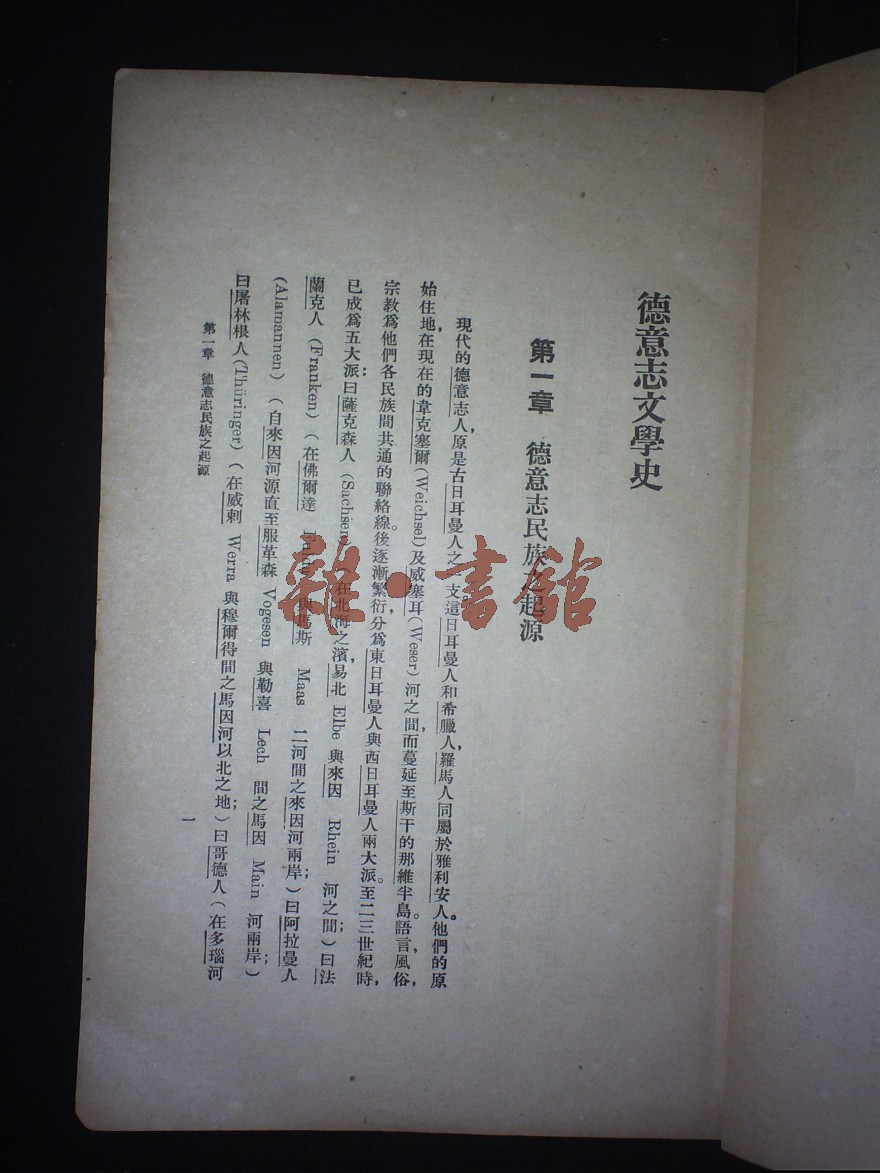 德意志文學史
第一章　德意志民族之起源
現代的德意志人，原是古日耳曼人之一支這日耳曼人和希臘人，羅馬人同屬於雅利安人。他們的原
始住地，在現在的韋克塞爾(Weichsel)及威塞耳(Weser)河之間，而蔓延至斯干的那維半島。語言，風俗，
宗教爲他們各民族間共通的聯絡線。後逐漸繁衍，分爲東日耳曼人與西日耳曼人兩大派。至二三世紀時，
已成爲五大派：曰薩克森人(Sachsen 在北海之濱，易北 Elbe 與來因 Rhein 河之間)；曰法
蘭克人(Franken)(在佛爾達 與馬斯 Maas 二河間之來因河兩岸)；曰阿拉曼人
(Alamannen)(自來因河源直至服革森 Vogesen 與勒喜 Lech 間之馬因 Main 河兩岸)；
曰屠林根人(Thüringer)(在威剌 Werra 與穆爾得間之馬因河以北之地)；曰哥德人(在多瑙河
第一章　德意志民族之起源
一
雜·書館